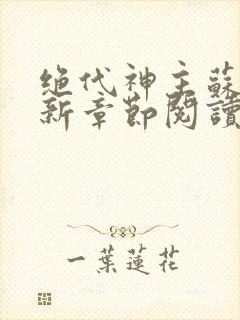 绝代神主蘇
新章節閱讀
一葉蓮花